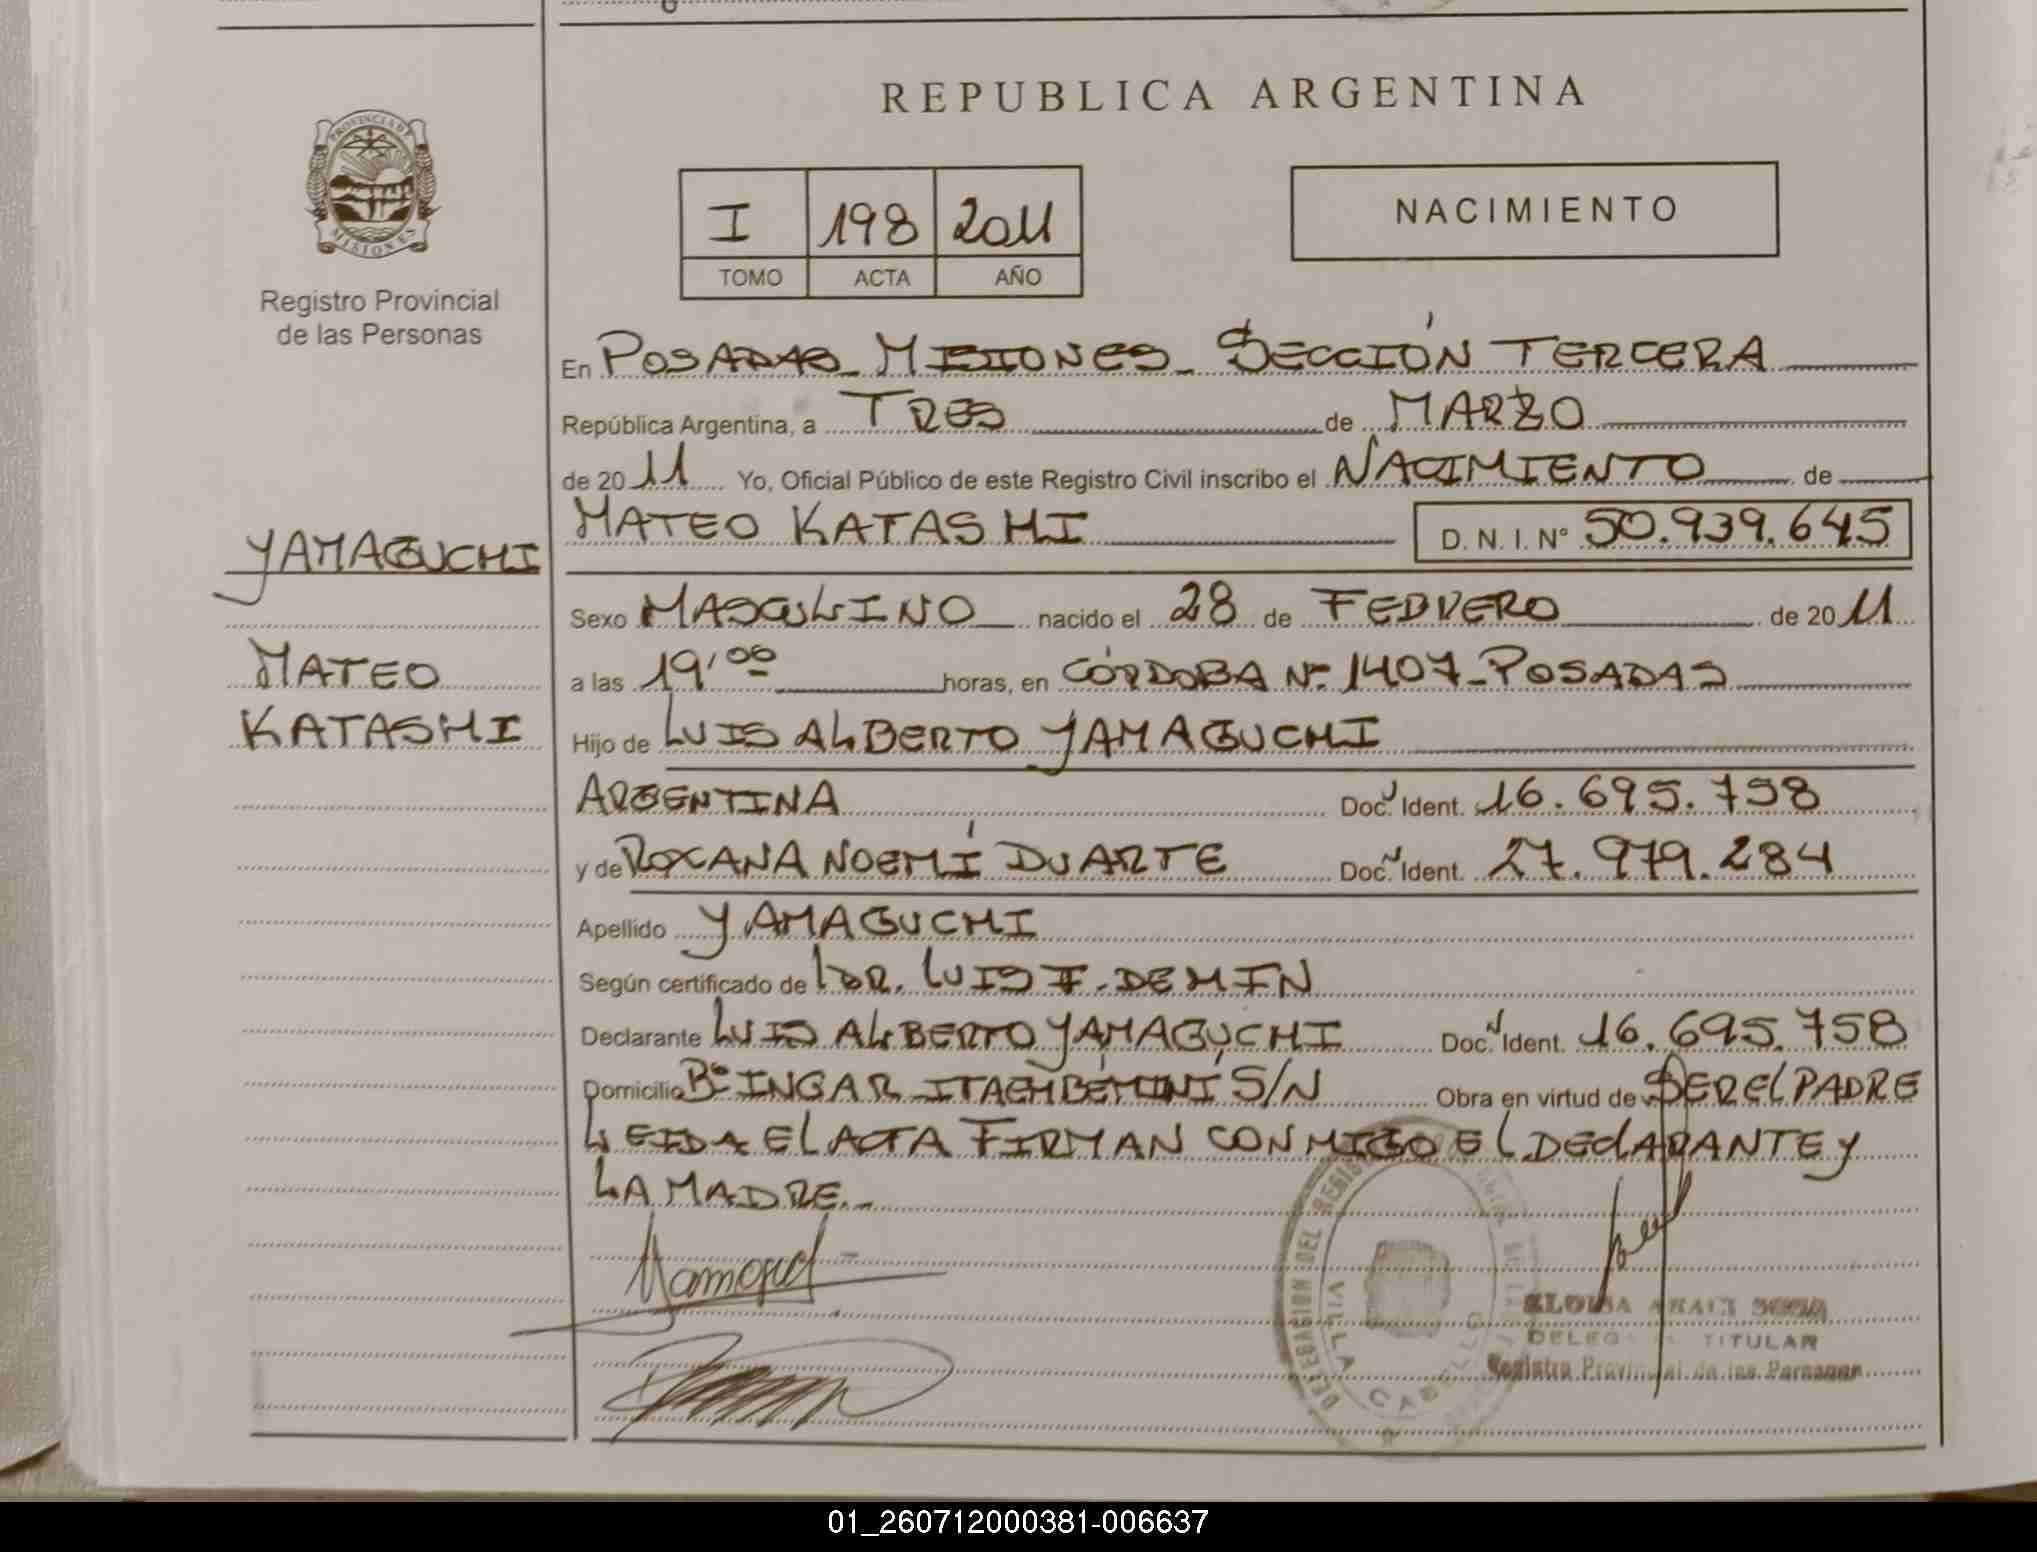 PROVINCIA DE
MISIONES
Registro Provincial
de las Personas
YAMAGUCHI
MATEO
KATASHI
REPUBLICA ARGENTINA
I 198 2011
TOMO ACTA AÑO
NACIMIENTO
En POSADAS_MISIONES_SECCIÓN TERCERA
República Argentina, a TRES de MARZO
de 2011 Yo, Oficial Público de este Registro Civil inscribo el NACIMIENTO de
MATEO KATASHI D. N. I. N° 50.939.645
Sexo MASCULINO nacido el 28 de FEBRERO de 2011
a las 19'00 horas, en CÓRDOBA Nº 1407_POSADAS
Hijo de LUIS ALBERTO YAMAGUCHI
ARGENTINA Doc. Ident. 16.695.758
y de ROXANA NOEMÍ DUARTE Doc. Ident. 27.979.284
Apellido YAMAGUCHI
Según certificado de DR. LUIS F. DEMIN
Declarante LUIS ALBERTO YAMAGUCHI Doc. Ident. 16.695.758
Domicilio Bº INGAR ITAEMBÉMINÍ S/N Obra en virtud de SER EL PADRE
LEIDA EL ACTA FIRMAN CONMIGO EL DECLARANTE Y
LA MADRE._
DELEGACION DEL
VILLA CABELLO
SOSA
TITULAR
Registro Provincial de las Personas
01_260712000381-006637